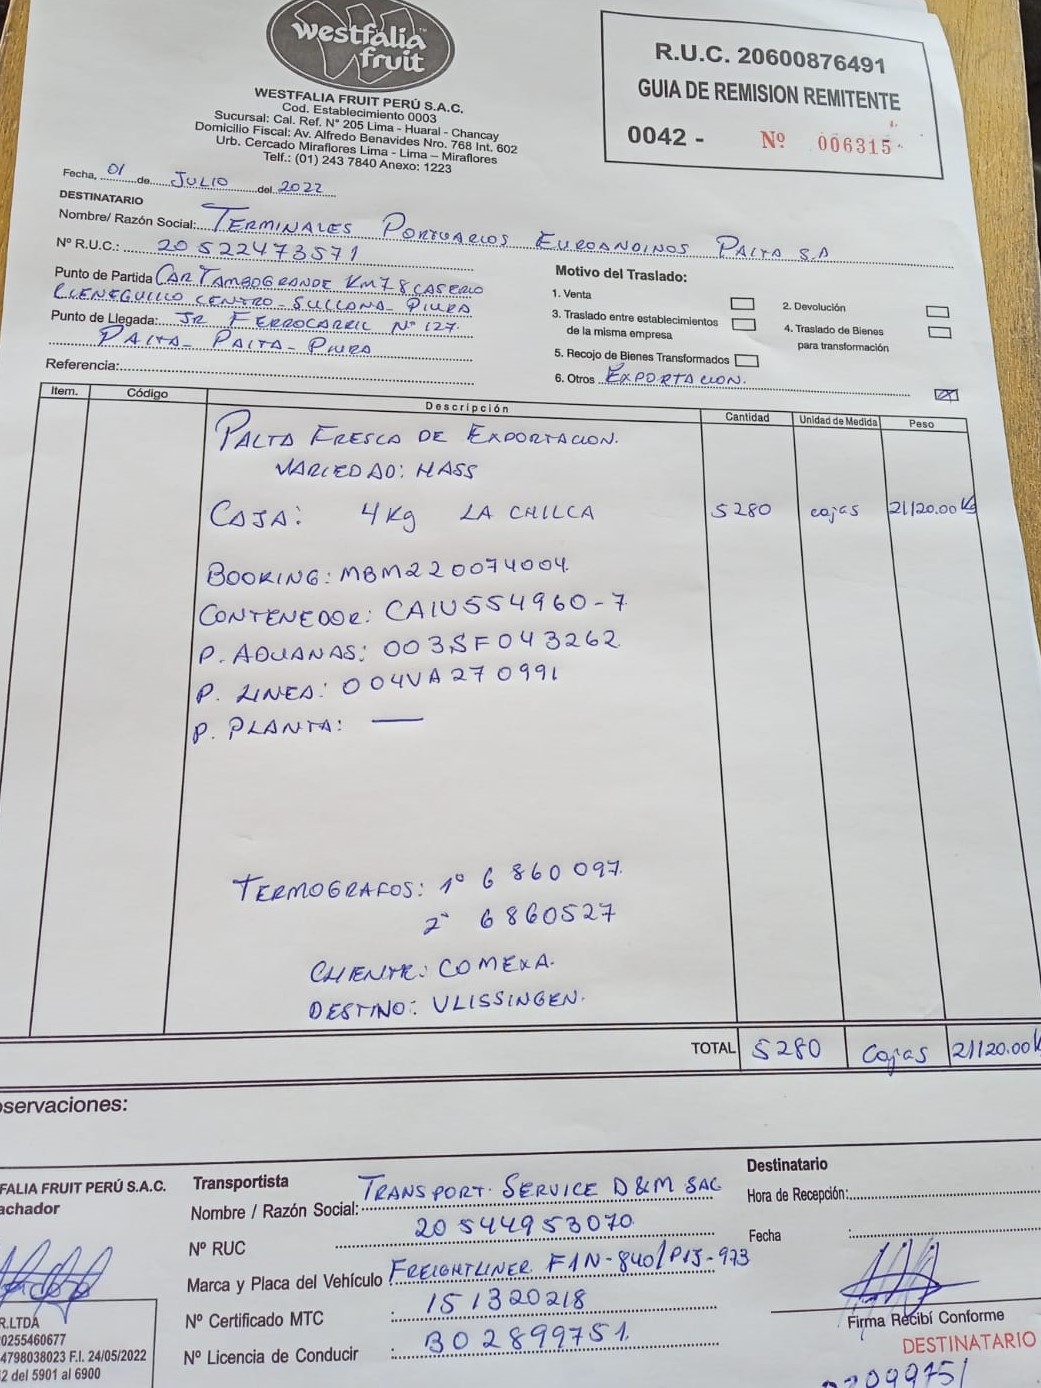 westfalia
fruit
WESTFALIA FRUIT PERÚ S.A.C.
Cod. Establecimiento 0003
Sucursal: Cal. Ref. N° 205 Lima - Huaral - Chancay
Domicilio Fiscal: Av. Alfredo Benavides Nro. 768 Int. 602
Urb. Cercado Miraflores Lima - Lima – Miraflores
Telf.: (01) 243 7840 Anexo: 1223
R.U.C. 20600876491
GUIA DE REMISION REMITENTE
0042 - Nº 006315
Fecha, 01 de JULIO del 2022
DESTINATARIO
Nombre/ Razón Social: TERMINALES PORTUARIOS EUROANDINOS PAITA S.A
Nº R.U.C.: 20522473571
Punto de Partida CAR TAMBOGRANDE KM 78 CASERIO
CIENEGUILLO CENTRO - SULLANA - PIURA
Punto de Llegada: JR FERROCARRIL Nº 127.
PAITA - PAITA - PIURA
Referencia:
Motivo del Traslado:
1. Venta
2. Devolución
3. Traslado entre establecimientos
de la misma empresa
4. Traslado de Bienes
para transformación
5. Recojo de Bienes Transformados
6. Otros EXPORTACION.
Item. Código Descripción Cantidad Unidad de Medida Peso
PALTA FRESCA DE EXPORTACION.
VARIEDAD: HASS
CAJA: 4 Kg LA CHILCA 5280 cajas 21120.00 Kg
BOOKING: MBM220074004.
CONTENEDOR: CAIU554960-7
P. ADUANAS: 003SF043262
P. LINEA: 004VA270991
P. PLANTA: —
TERMOGRAFOS: 1º 6860097.
2º 6860527
CLIENTE: COMEXA.
DESTINO: VLISSINGEN.
TOTAL 5280 Cajas 21120.00 K
servaciones:
FALIA FRUIT PERÚ S.A.C.
achador
Transportista
Nombre / Razón Social: TRANSPORT. SERVICE D&M SAC
Nº RUC 20544953070
Marca y Placa del Vehículo FREIGHTLINER F1N-840/P1J-973
Nº Certificado MTC : 151320218
Nº Licencia de Conducir : B02899751.
Destinatario
Hora de Recepción:
Fecha
Firma Recibí Conforme
DESTINATARIO
R.LTDA
0255460677
4798038023 F.I. 24/05/2022
2 del 5901 al 6900